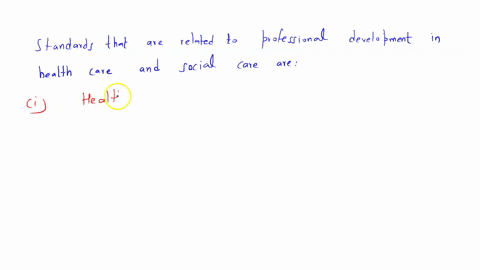 Standards that are related to professional development in
health care and social care are:
(i) Healt